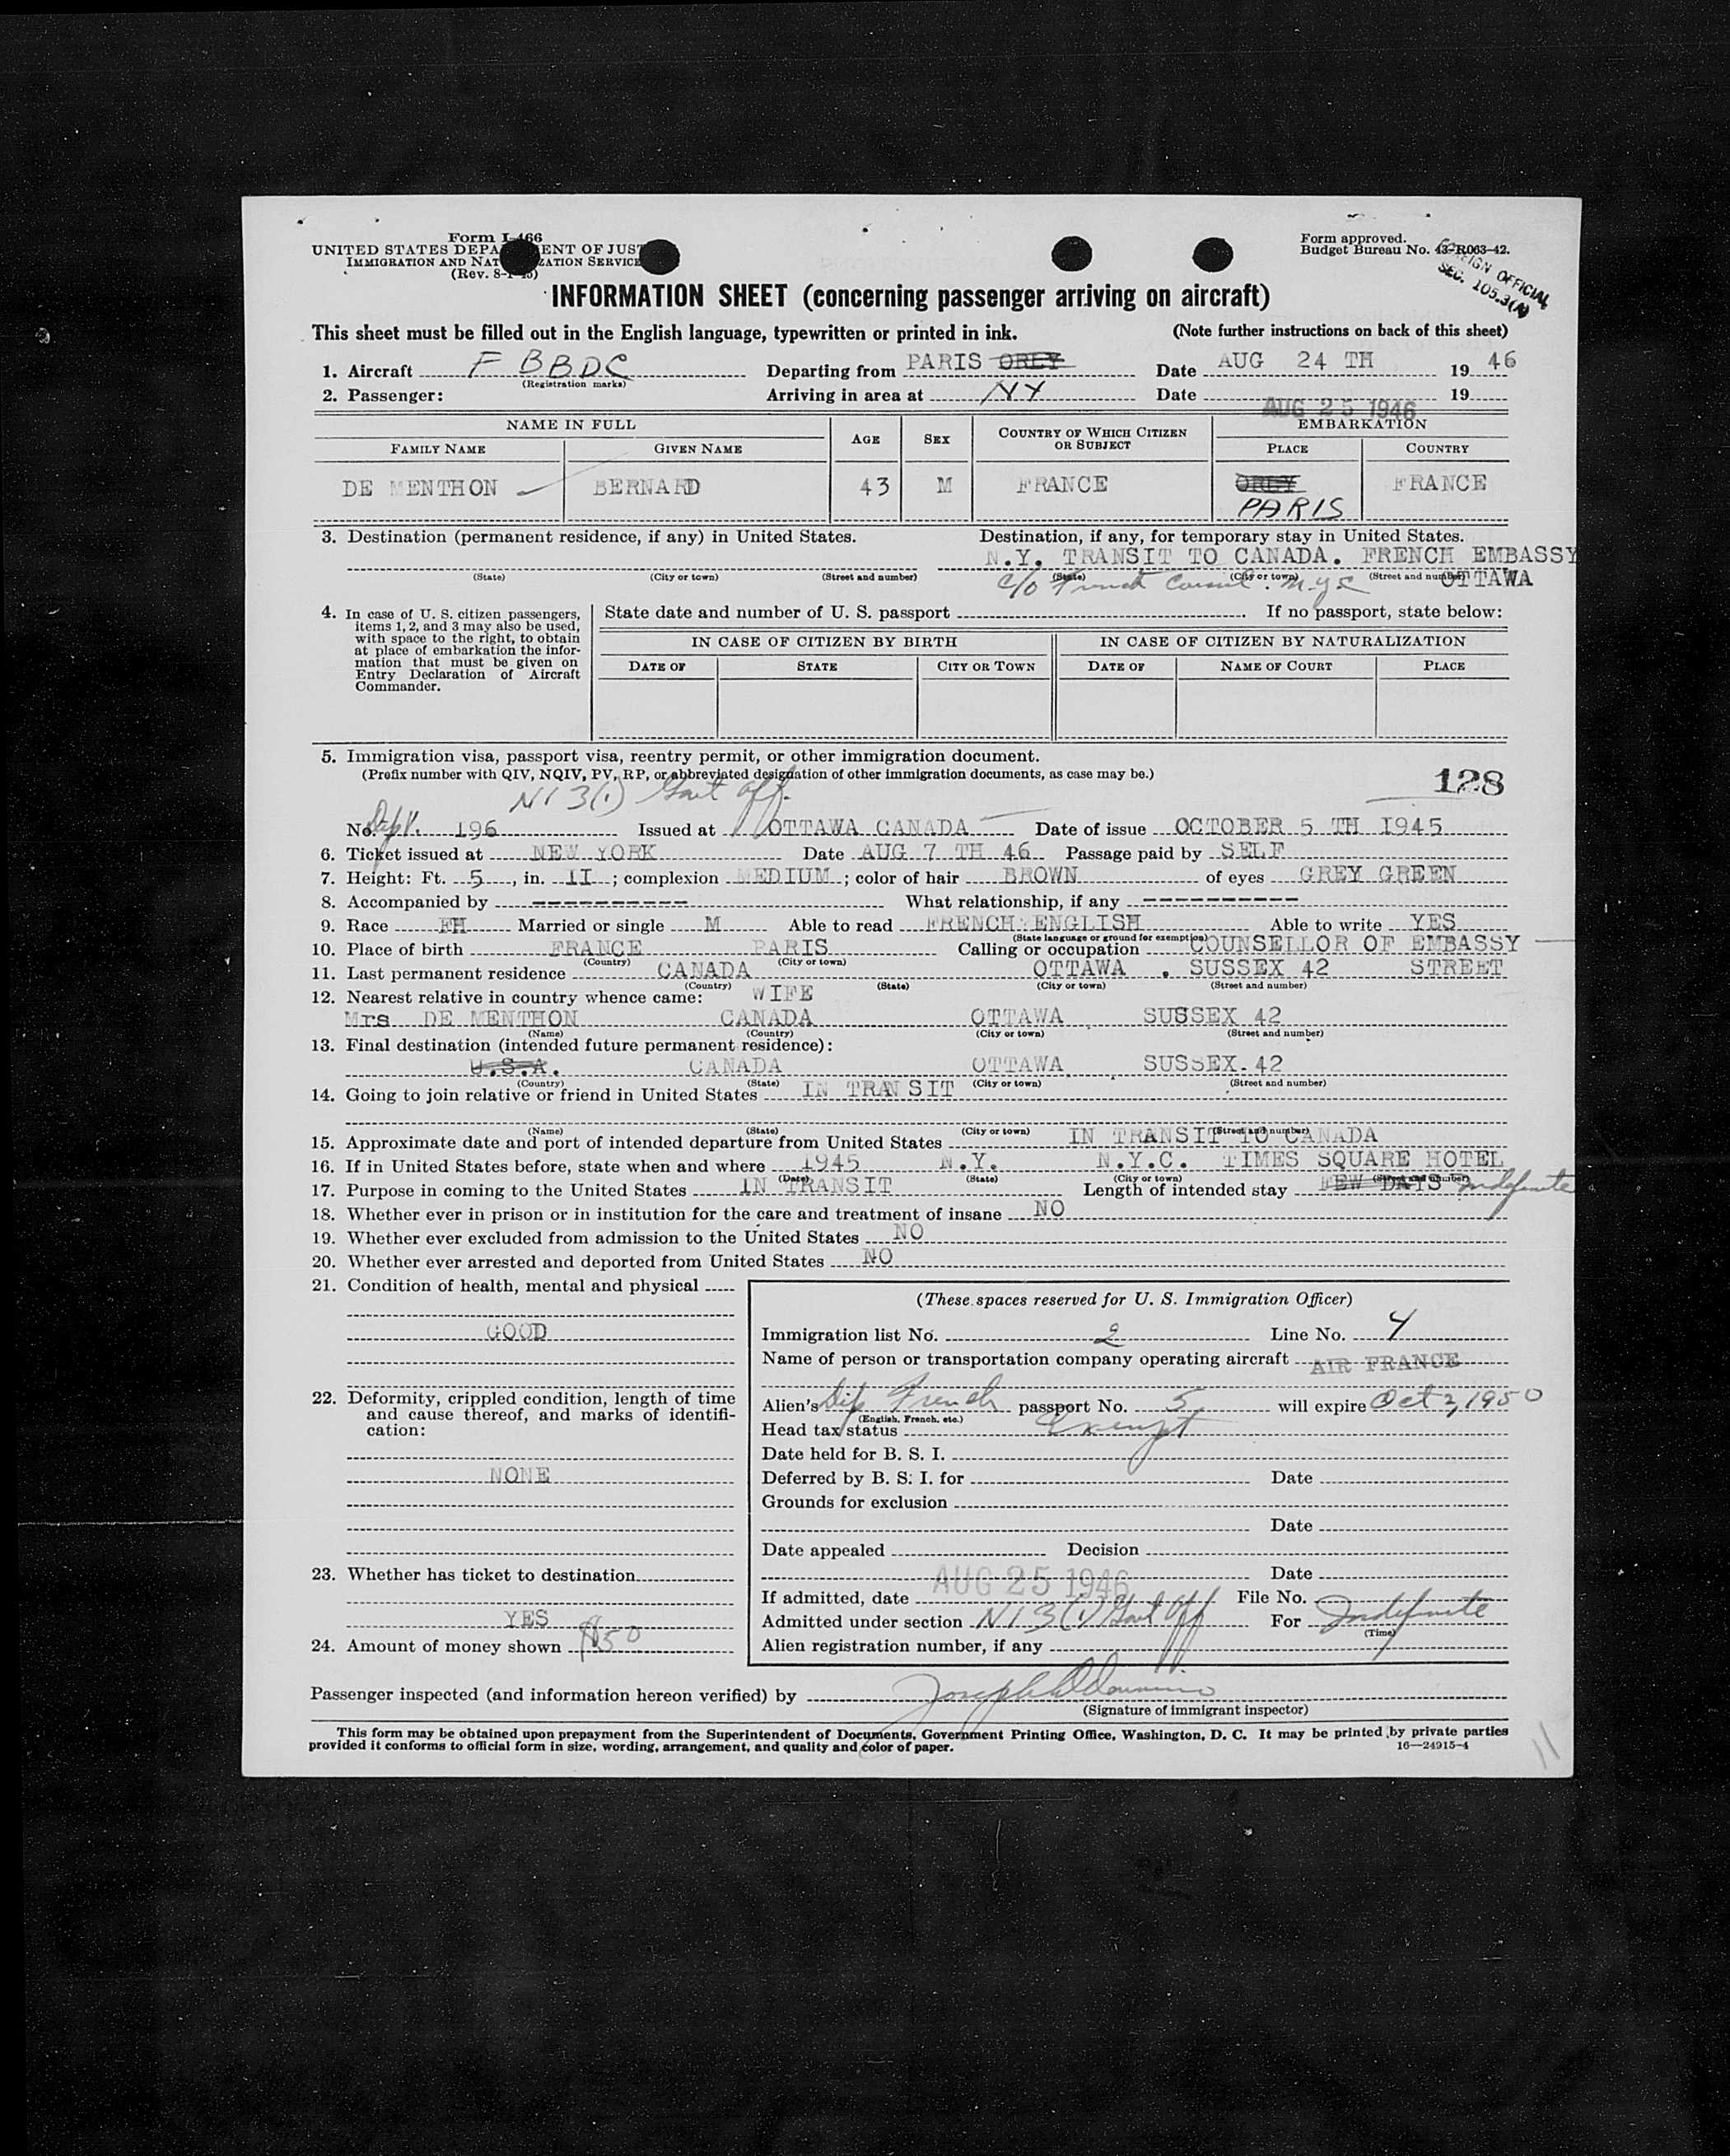 Form I-466
UNITED STATES DEPA ENT OF JUST
IMMIGRATION AND NAT ZATION SERVICE
(Rev. 8-1-45)
Form approved.
Budget Bureau No. 43-R063-42.
FOREIGN OFFICIAL
SEC. 105.3(A)
INFORMATION SHEET (concerning passenger arriving on aircraft)
This sheet must be filled out in the English language, typewritten or printed in ink. (Note further instructions on back of this sheet)
1. Aircraft F BBDC Departing from PARIS ORLY Date AUG 24 TH 19 46
(Registration marks)
2. Passenger: Arriving in area at NY Date AUG 25 1946 19
NAME IN FULL AGE SEX COUNTRY OF WHICH CITIZEN OR SUBJECT EMBARKATION
FAMILY NAME GIVEN NAME PLACE COUNTRY
DE MENTHON BERNARD 43 M FRANCE ORLY FRANCE
PARIS
3. Destination (permanent residence, if any) in United States. Destination, if any, for temporary stay in United States.
N.Y. TRANSIT TO CANADA. FRENCH EMBASSY
(State) (City or town) (Street and number) (State) (City or town) (Street and number) OTTAWA
c/o French Consul. N.Y.C
4. In case of U. S. citizen passengers, items 1, 2, and 3 may also be used, with space to the right, to obtain at place of embarkation the information that must be given on Entry Declaration of Aircraft Commander.
State date and number of U. S. passport If no passport, state below:
IN CASE OF CITIZEN BY BIRTH IN CASE OF CITIZEN BY NATURALIZATION
DATE OF STATE CITY OR TOWN DATE OF NAME OF COURT PLACE
5. Immigration visa, passport visa, reentry permit, or other immigration document.
(Prefix number with QIV, NQIV, PV, RP, or abbreviated designation of other immigration documents, as case may be.)
128
NI 3(1) Govt Off.
No. Dip V. 196 Issued at OTTAWA CANADA Date of issue OCTOBER 5 TH 1945
6. Ticket issued at NEW YORK Date AUG 7 TH 46 Passage paid by SELF
7. Height: Ft. 5, in. II; complexion MEDIUM; color of hair BROWN of eyes GREY GREEN
8. Accompanied by ---------- What relationship, if any ----------
9. Race FH Married or single M Able to read FRENCH ENGLISH Able to write YES
(State language or ground for exemption)
10. Place of birth FRANCE PARIS Calling or occupation COUNSELLOR OF EMBASSY
(Country) (City or town)
11. Last permanent residence CANADA OTTAWA . SUSSEX 42 STREET
(Country) (State) (City or town) (Street and number)
12. Nearest relative in country whence came: WIFE
Mrs DE MENTHON CANADA OTTAWA SUSSEX 42
(Name) (Country) (City or town) (Street and number)
13. Final destination (intended future permanent residence):
U.S.A. CANADA OTTAWA SUSSEX.42
(Country) (State) (City or town) (Street and number)
14. Going to join relative or friend in United States IN TRANSIT
(Name) (State) (City or town) (Street and number)
15. Approximate date and port of intended departure from United States IN TRANSIT TO CANADA
16. If in United States before, state when and where 1945 N.Y. N.Y.C. TIMES SQUARE HOTEL
(Date) (State) (City or town) (Street and number)
17. Purpose in coming to the United States IN TRANSIT Length of intended stay FEW DAYS Indefinite
18. Whether ever in prison or in institution for the care and treatment of insane NO
19. Whether ever excluded from admission to the United States NO
20. Whether ever arrested and deported from United States NO
21. Condition of health, mental and physical
GOOD
22. Deformity, crippled condition, length of time and cause thereof, and marks of identification:
NONE
23. Whether has ticket to destination
YES
24. Amount of money shown $50
(These spaces reserved for U. S. Immigration Officer)
Immigration list No. 2 Line No. 4
Name of person or transportation company operating aircraft AIR FRANCE
Alien's Dip French passport No. 5 will expire Oct 2, 1950
(English, French, etc.)
Head tax status Exempt
Date held for B. S. I.
Deferred by B. S. I. for Date
Grounds for exclusion
Date
Date appealed Decision
Date
If admitted, date AUG 25 1946 File No.
Admitted under section NI 3(1) Govt Off For Indefinite
(Time)
Alien registration number, if any
Passenger inspected (and information hereon verified) by
(Signature of immigrant inspector)
This form may be obtained upon prepayment from the Superintendent of Documents, Government Printing Office, Washington, D. C. It may be printed by private parties
provided it conforms to official form in size, wording, arrangement, and quality and color of paper. 16—24915-4
11